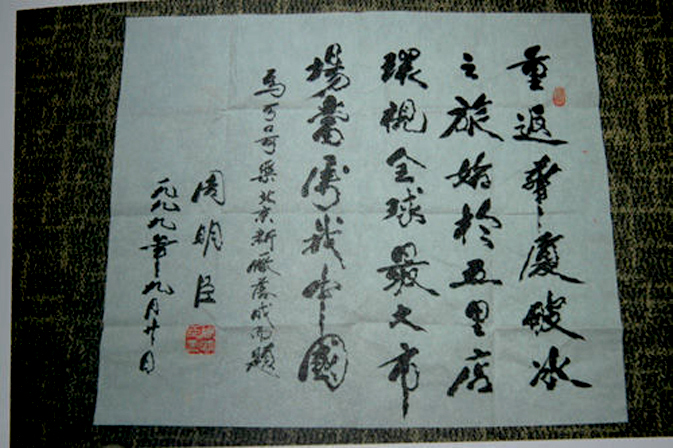 重返華夏破冰
之旅始於五里店
環視全球最大市
場當屬我中國
為可口可樂北京新廠落成而題
周明臣
一九九九年九月廿日